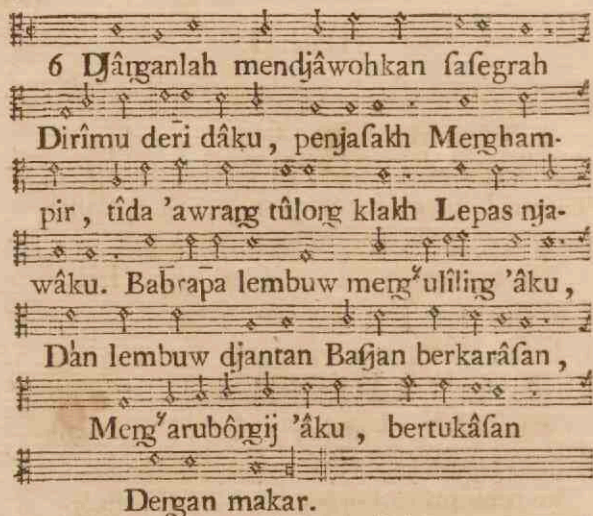 6 Djânganlah mendjâwohkan ſaſegrah
Dirîmu deri dâku, penjaſakh Mengham-
pir, tîda 'awrang tûlong klakh Lepas nja-
wâku. Babrapa lembuw mengʻulîling 'âku,
Dan lembuw djantan Baſjan berkarâſan,
Mengʻarubôngij 'âku, bertukâſan
Dengan makar.